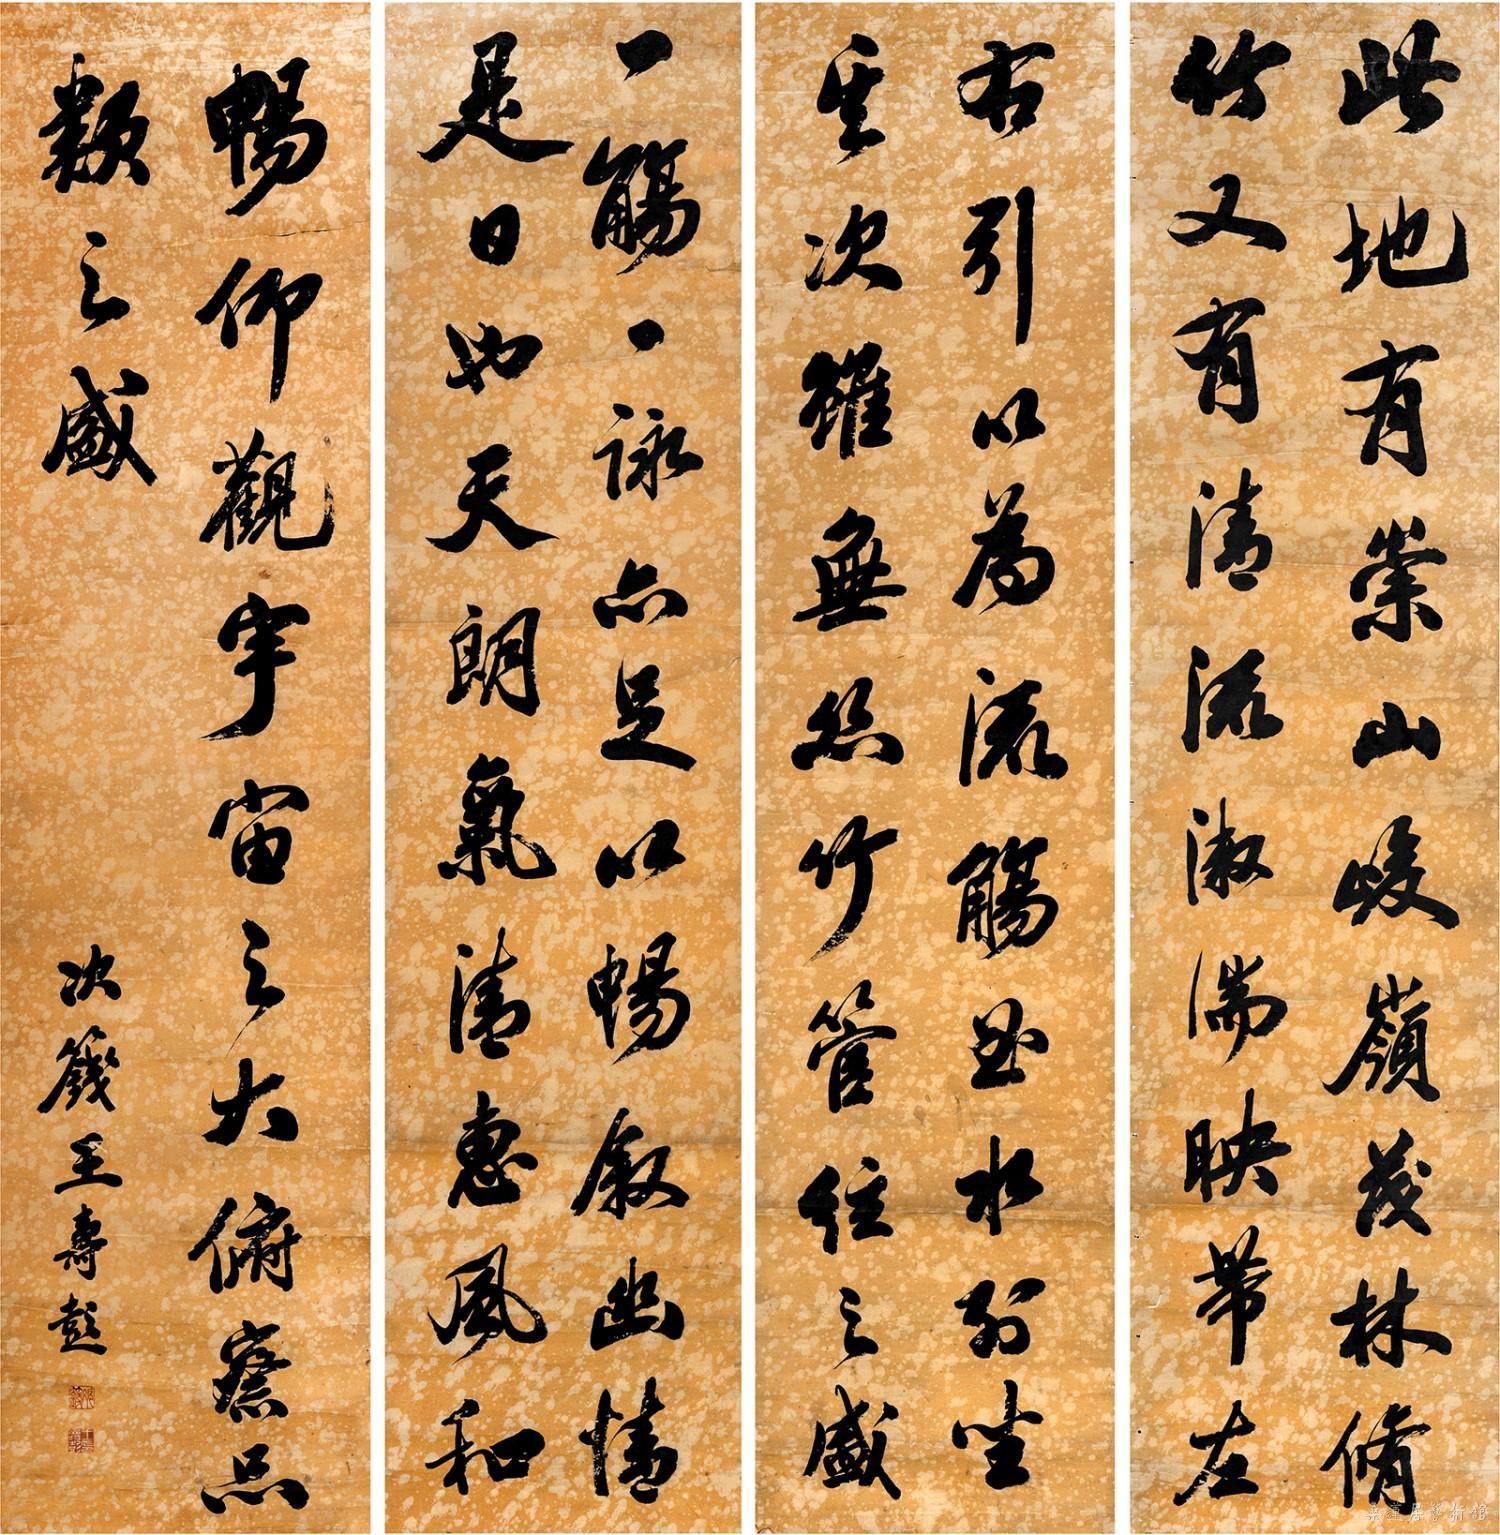 此地有崇山峻嶺茂林脩
竹又有清流激湍映帶左
右引以為流觴曲水列坐
其次雖無絲竹管弦之盛
一觴一詠亦足以暢敘幽情
是日也天朗氣清惠風和
暢仰觀宇宙之大俯察品
類之盛
次籛王壽彭
桑蓮居藝術館